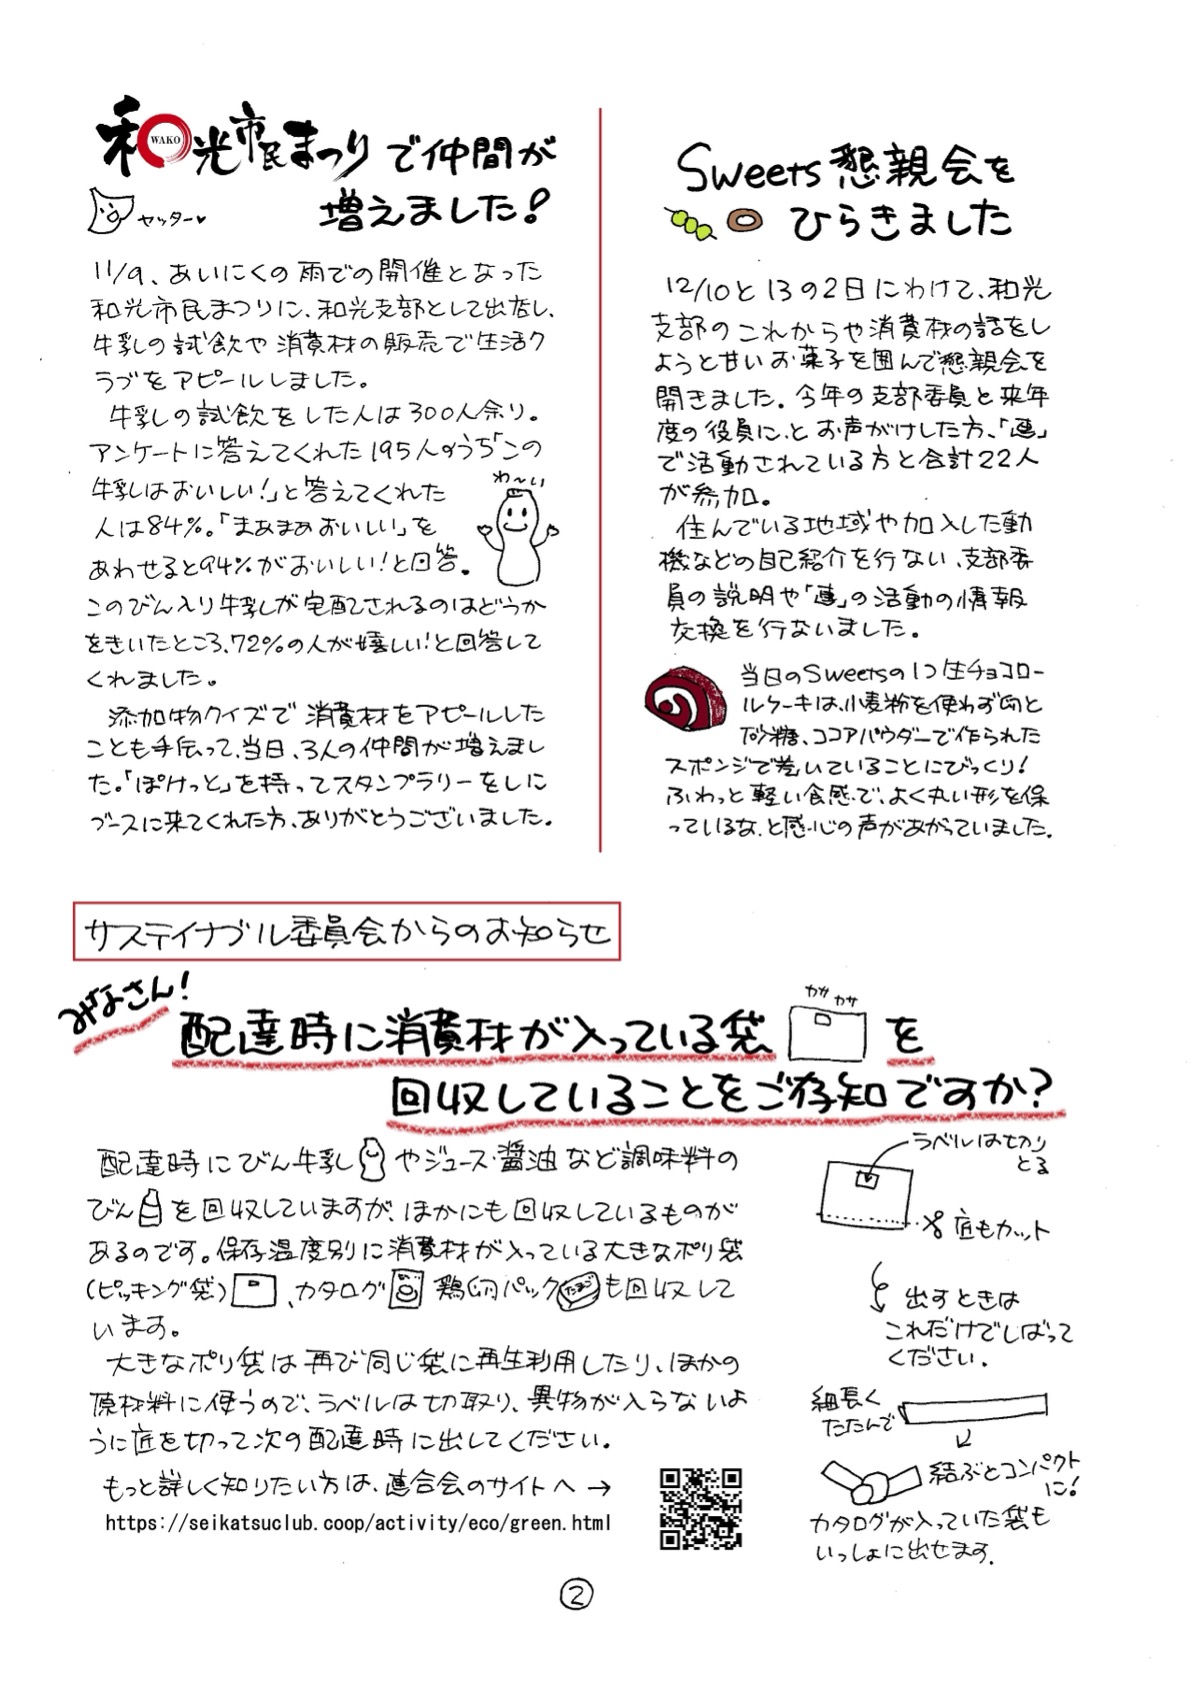 和光市民まつりで仲間が
WAKO
増えました!
ヤッター♥
11/9、あいにくの雨での開催となった
和光市民まつりに、和光支部として出店し、
牛乳の試飲や消費材の販売で生活ク
ラブをアピールしました。
牛乳の試飲をした人は300人余り。
アンケートに答えてくれた195人のうち「この
牛乳はおいしい!」と答えてくれた
人は84%。「まあまあおいしい」を
あわせると94%がおいしい!と回答。
わ〜い
このびん入り牛乳が宅配されるのはどうか
をきいたところ、72%の人が嬉しい!と回答して
くれました。
添加物クイズで消費材をアピールした
ことも手伝って、当日、3人の仲間が増えまし
た。「ぽけっと」を持ってスタンプラリーをしに
ブースに来てくれた方、ありがとうございました。
Sweets懇親会を
ひらきました
12/10と13の2日にわけて、和光
支部のこれからや消費材の話をし
ようと甘いお菓子を囲んで懇親会を
開きました。今年の支部委員と来年
度の役員に、とお声がけした方、「連」
で活動されている方と合計22人
が参加。
住んでいる地域や加入した動
機などの自己紹介を行ない、支部委
員の説明や「連」の活動の情報
交換を行ないました。
当日のSweetsの1つ生チョコロー
ルケーキは、小麦粉を使わず卵と
砂糖、ココアパウダーで作られた
スポンジで巻いていることにびっくり!
ふわっと軽い食感で、よく丸い形を保
っているな、と感心の声があがっていました。
サステイナブル委員会からのお知らせ
みなさん!
配達時に消費材が入っている袋を
カサカサ
回収していることをご存知ですか?
配達時にびん牛乳やジュース・醤油など調味料の
びんを回収していますが、ほかにも回収しているものが
あるのです。保存温度別に消費材が入っている大きなポリ袋
(ピッキング袋)、カタログ鶏卵パックたまごも回収して
います。
大きなポリ袋は再び同じ袋に再生利用したり、ほかの
原材料に使うので、ラベルは切取り、異物が入らないよ
うに底を切って次の配達時に出してください。
もっと詳しく知りたい方は、連合会のサイトへ→
https://seikatsuclub.coop/activity/eco/green.html
ラベルは切り
とる
底もカット
出すときは
これだけでしばって
ください。
細長く
たたんで
結ぶとコンパクト
に!
カタログが入っていた袋も
いっしょに出せます。
②